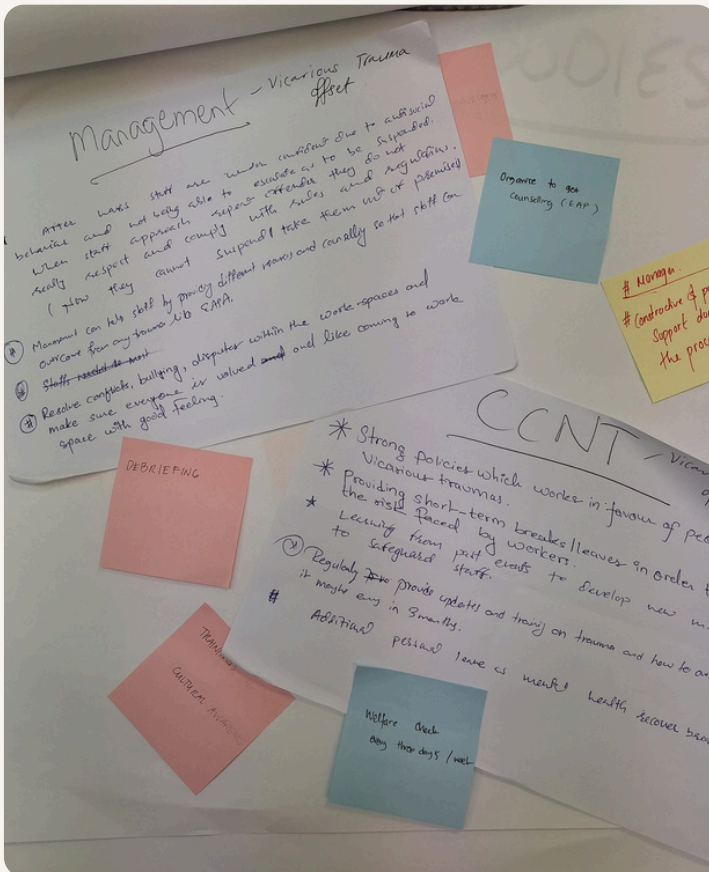 Management - Vicarious Trauma
offset
After wards staff are under confident due to antisocial
behavior and not being able to escalate as to be suspended.
when staff approach repeat offender they do not
really respect and comply with rules and regulation.
( Now they cannot suspend/ take them out of premises
Management can help staff by providing different resources and counselling so that staff can
overcome from any trauma like EAPA.
Resolve conflicts, bullying, disputes within the work spaces and
make sure everyone is valued and like coming to work
space with good feeling.
Organise to get
counselling (EAP)
# Manager.
# Constructive &
Support
the
CCNT
* Strong policies which works in favour of
vicarious traumas.
* Providing short-term breaks/leaves in order
the risk faced by workers.
* Learning from past events to develop new
to safeguard staff.
Regularly provide updates and training on trauma and how to
it maybe every in 3 months.
# Additional personal leave as mental health recover
DEBRIEFING
CULTURAL
Welfare check
every three days / week